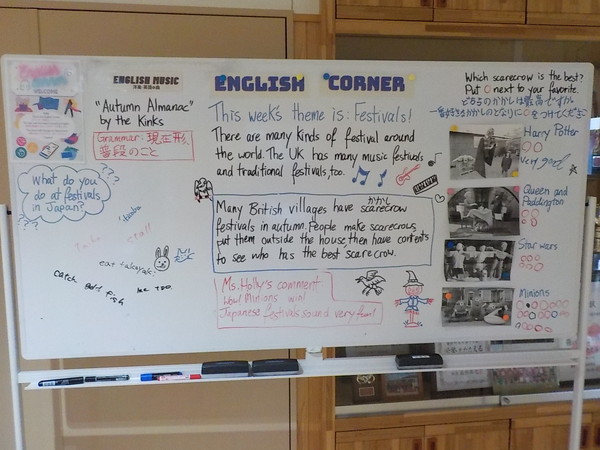 ENGLISH MUSIC
"Autumn Almanac"
by the Kinks
Grammar: 現在形,
普段のこと
ENGLISH CORNER
This week's theme is: Festivals!
There are many kinds of festival around
the world. The UK has many music festivals
and traditional festivals, too.
かかし
Many British villages have scarecrow
festivals in autumn. People make scarecrows,
put them outside the house, then have contests
to see who has the best scarecrow.
Ms. Holly's comment:
Wow! Minions win!
Japanese festivals sound very fun!
What do you
do at festivals
in Japan?
???
???
eat takoyaki
catch gold fish
me too
Which scarecrow is the best?
Put O next to your favorite.
どちらのかかしは最高ですか
一番好きなかかしのとなりにOをつけてください
Harry Potter
very good
Queen and
Paddington
Star wars
Minions
WELCOME